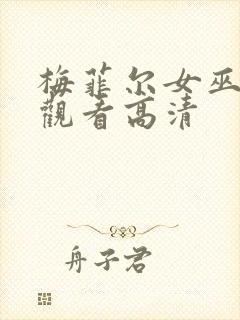 梅菲尔女巫
觀看高清
舟子君